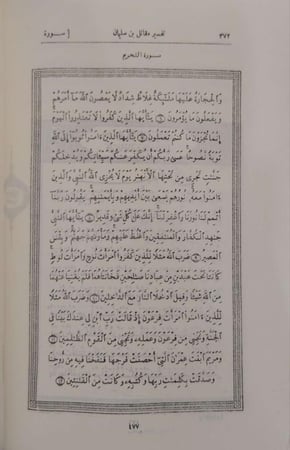 ٣٧٢ تفسير مقاتل بن سليمان [ سورة
سورة التحريم
وَالْحِجَارَةُ عَلَيْهَا مَلَٰٓئِكَةٌ غِلَاظٌ شِدَادٌ لَّا يَعْصُونَ ٱللَّهَ مَآ أَمَرَهُمْ
وَيَفْعَلُونَ مَا يُؤْمَرُونَ ۝ يَٰٓأَيُّهَا ٱلَّذِينَ كَفَرُوا۟ لَا تَعْتَذِرُوا۟ ٱلْيَوْمَ
إِنَّمَا تُجْزَوْنَ مَا كُنتُمْ تَعْمَلُونَ ۝ يَٰٓأَيُّهَا ٱلَّذِينَ ءَامَنُوا۟ تُوبُوٓا۟ إِلَى ٱللَّهِ
تَوْبَةً نَّصُوحًا عَسَىٰ رَبُّكُمْ أَن يُكَفِّرَ عَنكُمْ سَيِّـَٔاتِكُمْ وَيُدْخِلَكُمْ
جَنَّٰتٍ تَجْرِى مِن تَحْتِهَا ٱلْأَنْهَٰرُ يَوْمَ لَا يُخْزِى ٱللَّهُ ٱلنَّبِىَّ وَٱلَّذِينَ
ءَامَنُوا۟ مَعَهُۥ نُورُهُمْ يَسْعَىٰ بَيْنَ أَيْدِيهِمْ وَبِأَيْمَٰنِهِمْ يَقُولُونَ رَبَّنَآ
أَتْمِمْ لَنَا نُورَنَا وَٱغْفِرْ لَنَآ إِنَّكَ عَلَىٰ كُلِّ شَىْءٍ قَدِيرٌ ۝ يَٰٓأَيُّهَا ٱلنَّبِىُّ
جَٰهِدِ ٱلْكُفَّارَ وَٱلْمُنَٰفِقِينَ وَٱغْلُظْ عَلَيْهِمْ وَمَأْوَىٰهُمْ جَهَنَّمُ وَبِئْسَ
ٱلْمَصِيرُ ۝ ضَرَبَ ٱللَّهُ مَثَلًا لِّلَّذِينَ كَفَرُوا۟ ٱمْرَأَتَ نُوحٍ وَٱمْرَأَتَ لُوطٍ
كَانَتَا تَحْتَ عَبْدَيْنِ مِنْ عِبَادِنَا صَٰلِحَيْنِ فَخَانَتَاهُمَا فَلَمْ يُغْنِيَا عَنْهُمَا
مِنَ ٱللَّهِ شَيْـًٔا وَقِيلَ ٱدْخُلَا ٱلنَّارَ مَعَ ٱلدَّٰخِلِينَ ۝ وَضَرَبَ ٱللَّهُ مَثَلًا
لِّلَّذِينَ ءَامَنُوا۟ ٱمْرَأَتَ فِرْعَوْنَ إِذْ قَالَتْ رَبِّ ٱبْنِ لِى عِندَكَ بَيْتًا فِى
ٱلْجَنَّةِ وَنَجِّنِى مِن فِرْعَوْنَ وَعَمَلِهِۦ وَنَجِّنِى مِنَ ٱلْقَوْمِ ٱلظَّٰلِمِينَ ۝
وَمَرْيَمَ ٱبْنَتَ عِمْرَٰنَ ٱلَّتِىٓ أَحْصَنَتْ فَرْجَهَا فَنَفَخْنَا فِيهِ مِن رُّوحِنَا
وَصَدَّقَتْ بِكَلِمَٰتِ رَبِّهَا وَكُتُبِهِۦ وَكَانَتْ مِنَ ٱلْقَٰنِتِينَ ۝
٤٧٧